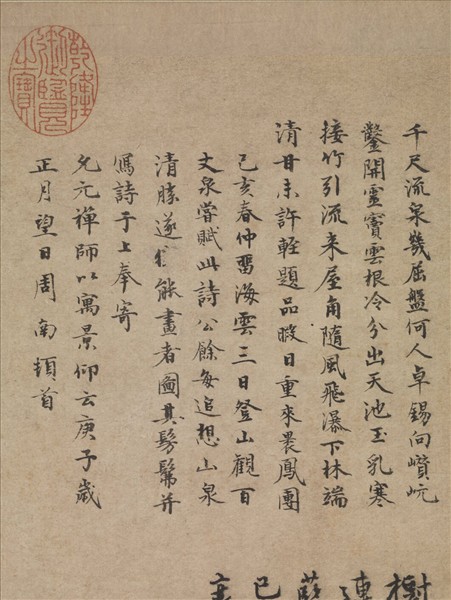 千尺流泉幾屈盤何人卓錫向巑岏
鑿開靈竇雲根冷分出天池玉乳寒
接竹引流来屋角隨風飛瀑下林端
清甘未許輕題品暇日重來畏鳳團
己亥春仲留海雲三日登山觀百
丈泉嘗賦此詩公餘每追想山泉
清勝遂倩能畫者圖其髣髴并
寫詩于上奉寄
允元禪師以寓景仰云庚子歲
正月望日周南頓首
乾隆御覽之寶